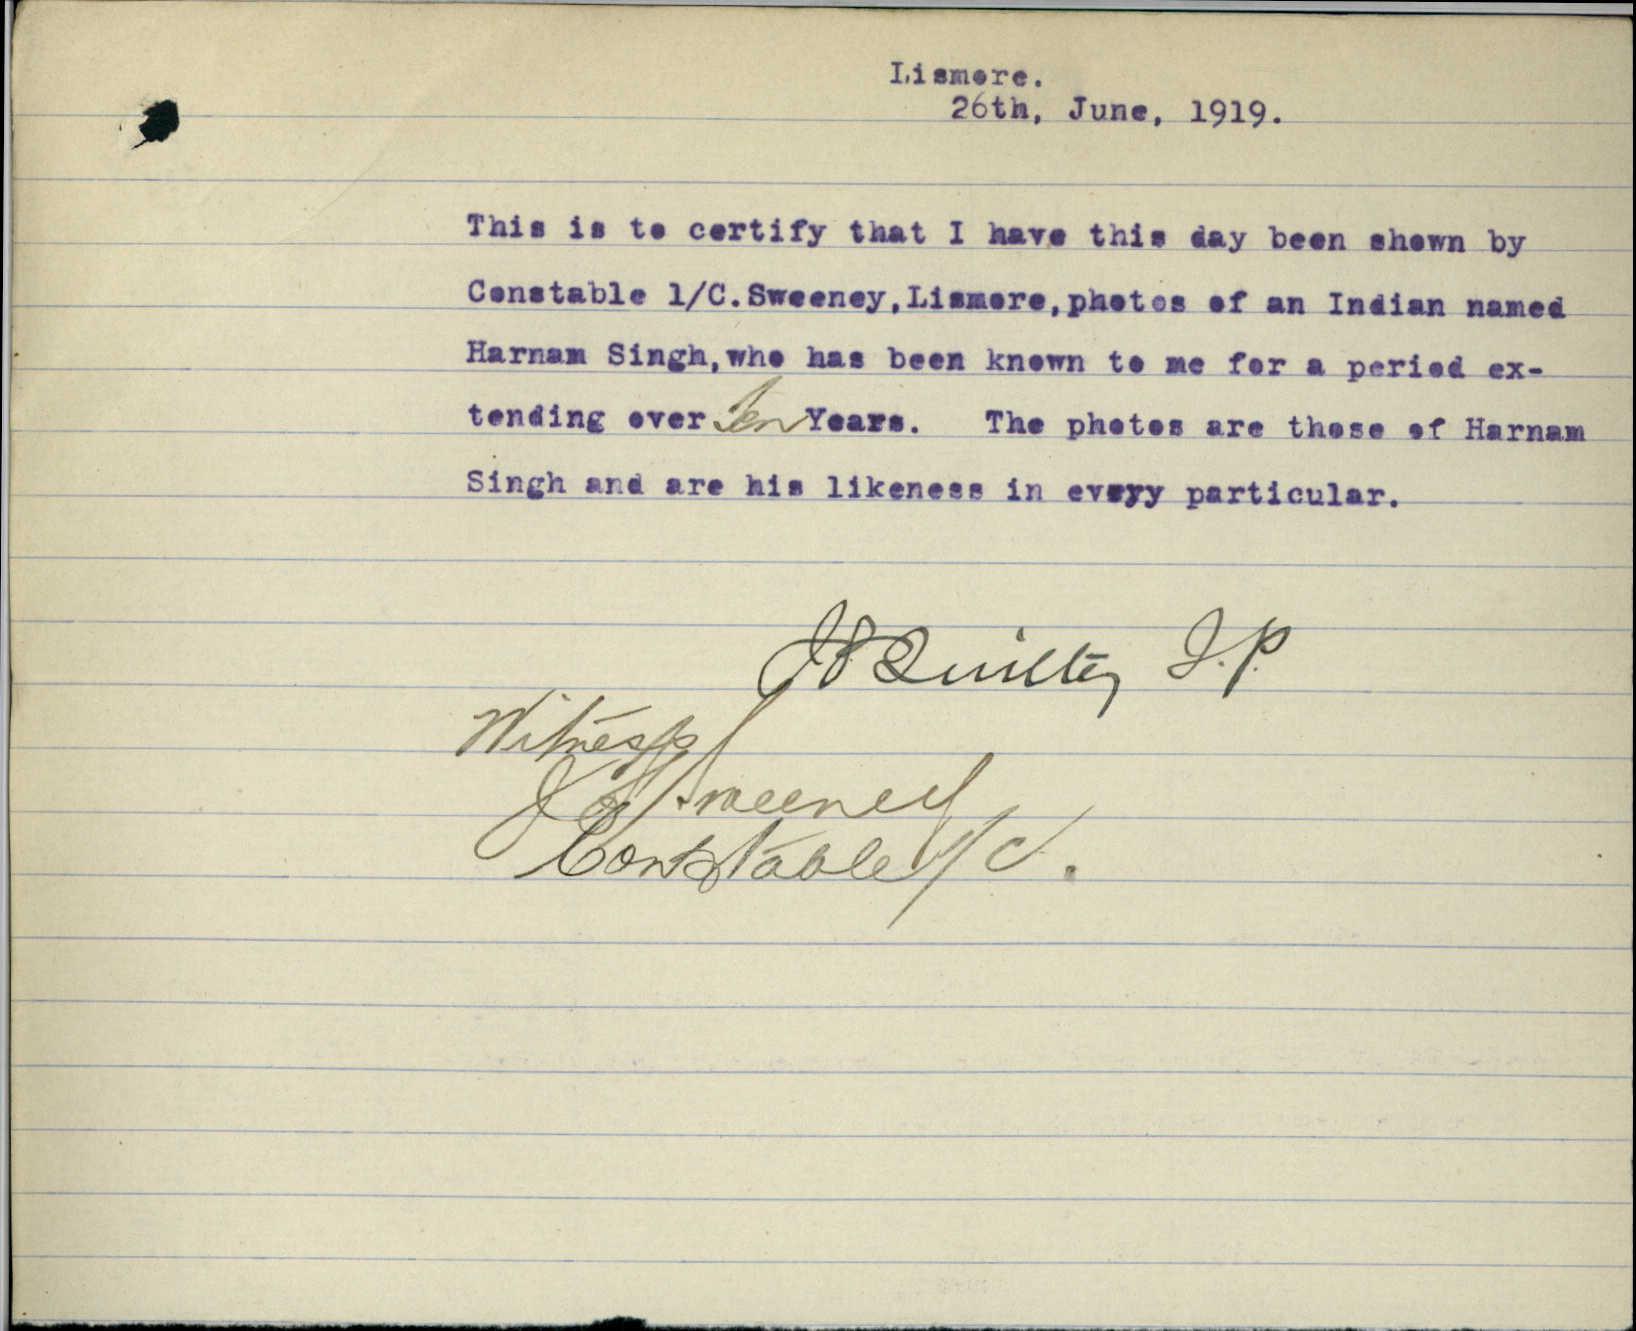 Lismore.
26th, June, 1919.
This is to certify that I have this day been shown by
Constable 1/C.Sweeney,Lismore,photos of an Indian named
Harnam Singh,who has been known to me for a period ex-
tending over Ten Years. The photos are those of Harnam
Singh and are his likeness in evyyy particular.
Quilty J.P.
Witness
Sweeney
Constable 1/C.